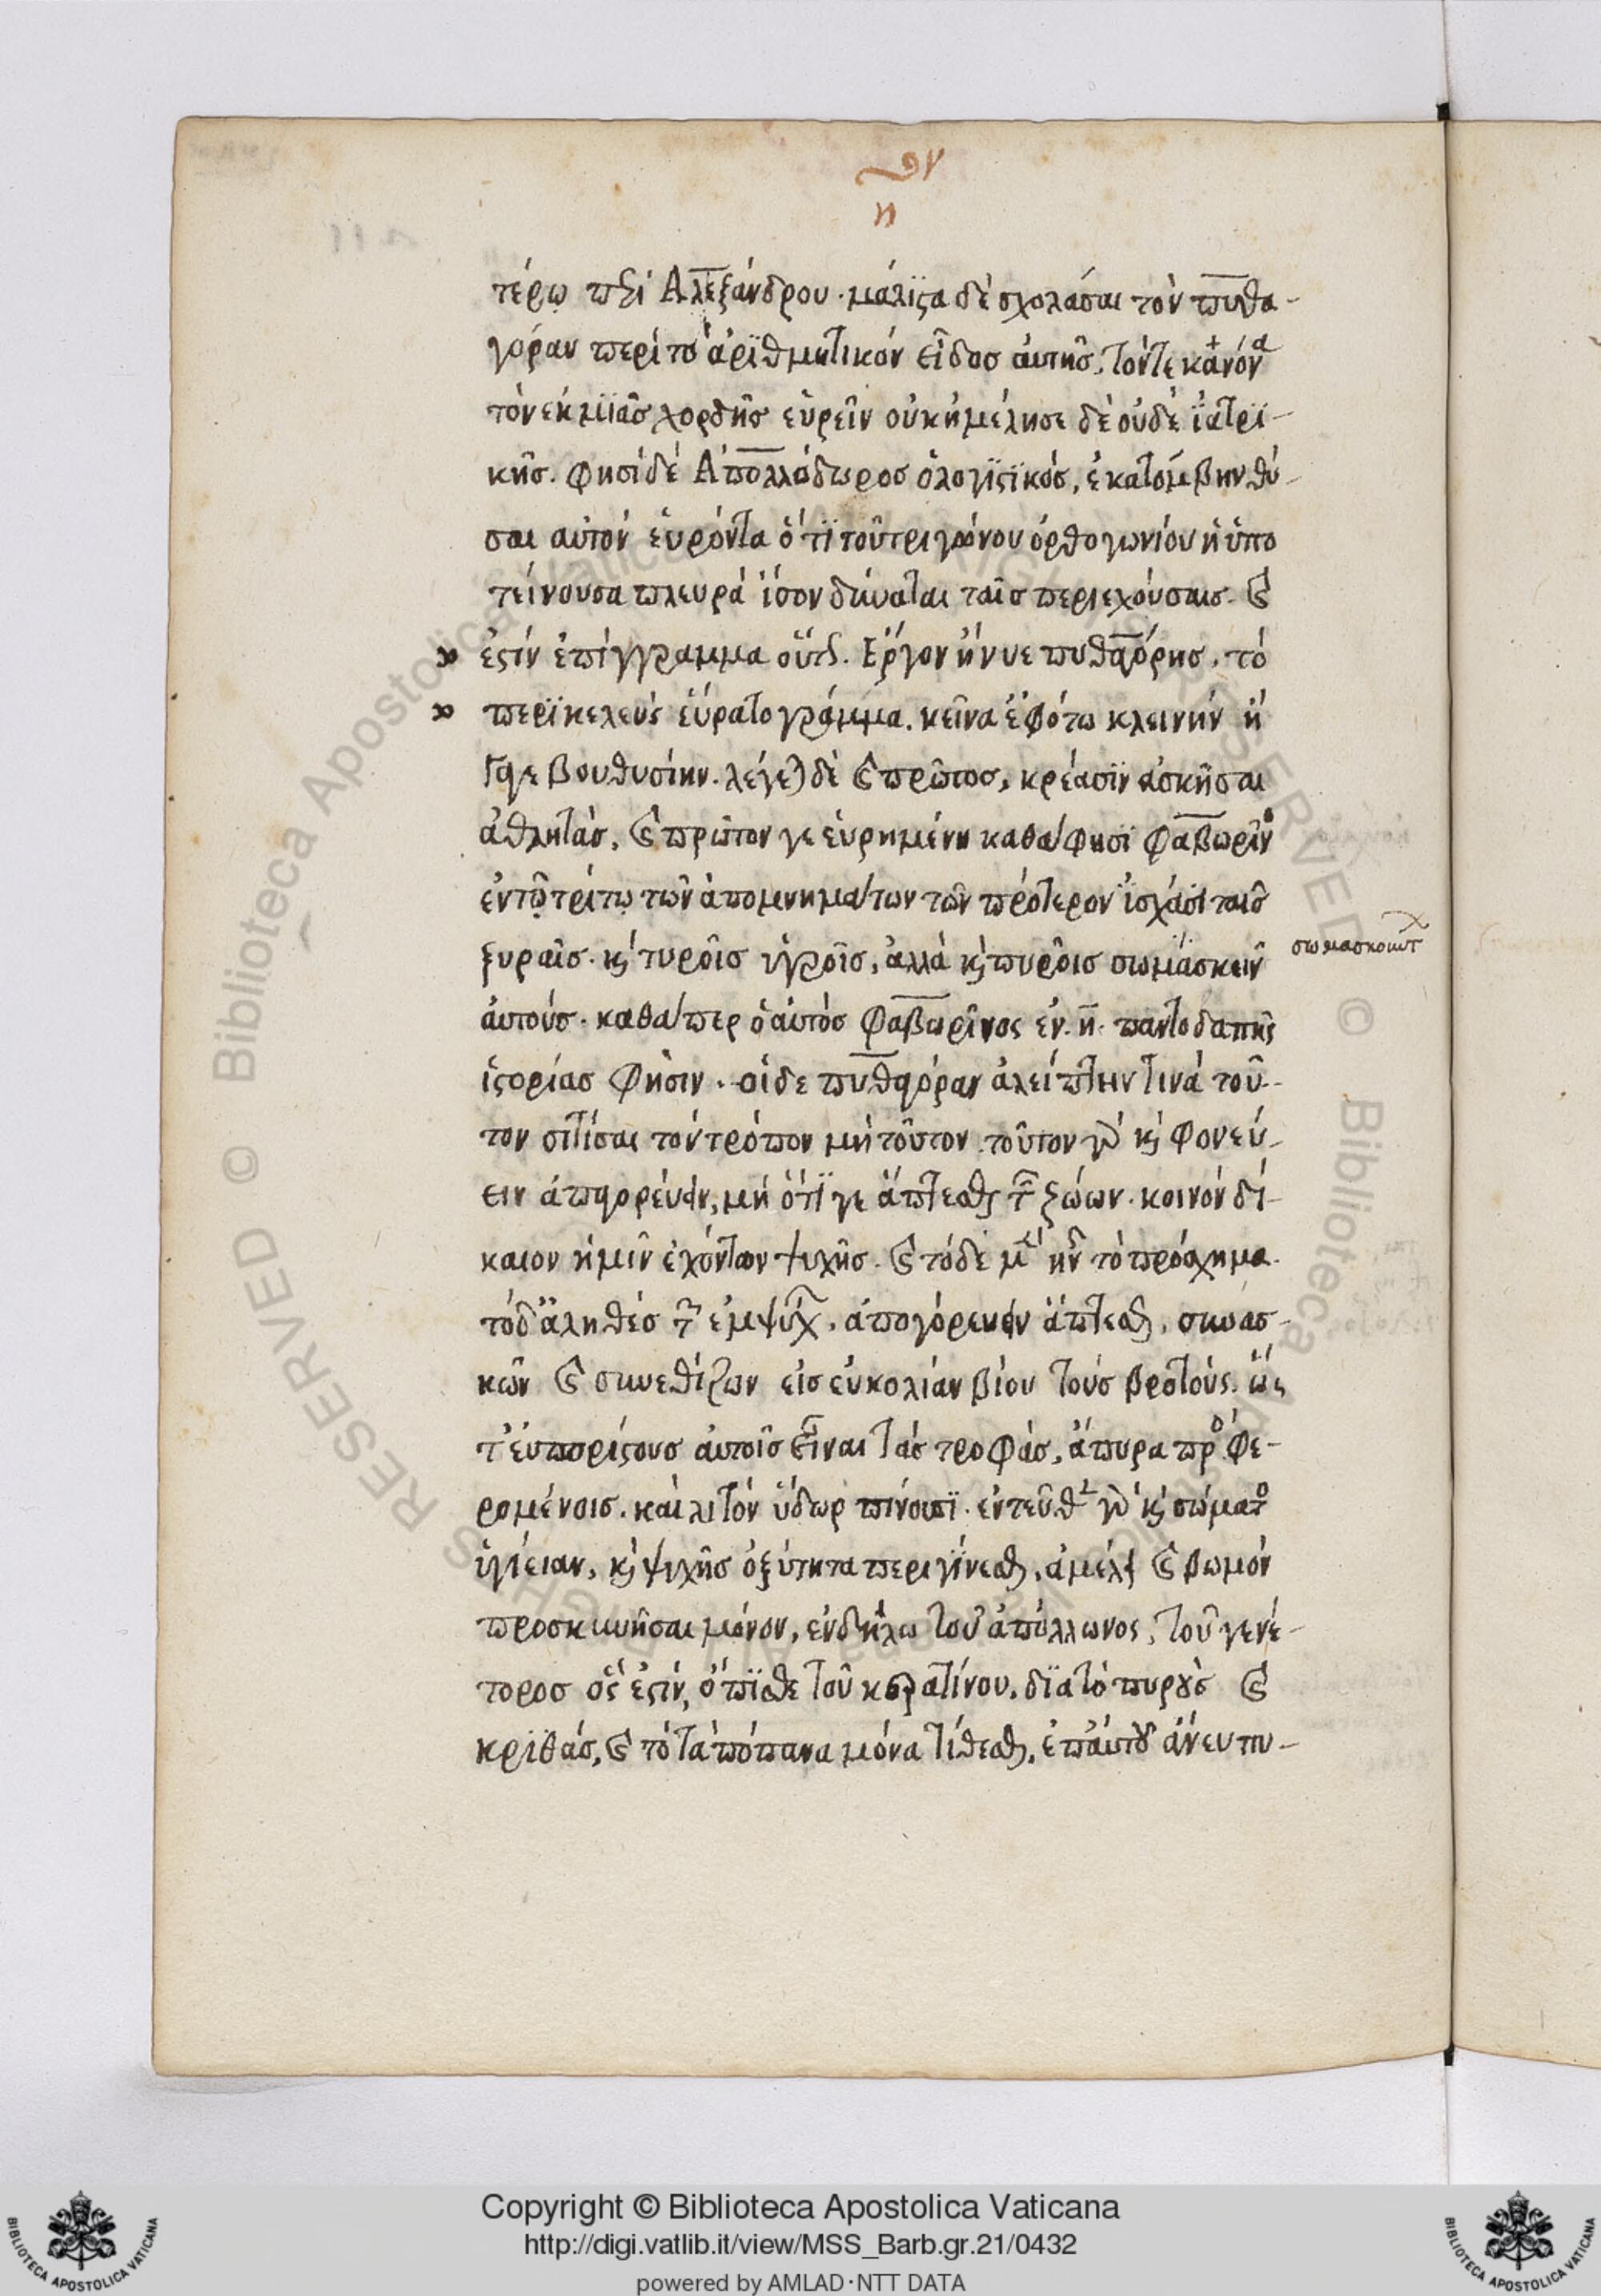 τέρῳ περὶ Ἀλεξάνδρου· μάλιϛα δὲ σχολάσαι τὸν πυθα-
γόραν περὶ τὸ ἀρϊθμητικόν εἶδοσ ἀυτῆσ. τόν τε κανόνα
τὸν ἐκ μϊᾶσ χορδῆσ εὑρεῖν οὐκ ἠμέλησε δὲ οὐδὲ ϊατρϊ-
κῆσ. φησὶ δέ Ἀπολλόδωροσ ὁ λογϊϛϊκόσ, ἑκατόμβην θῦ-
σαι αὐτόν ἑυρόντα ὅτϊ τοῦ τριγώνου ὀρθογωνίου ἡ ὑπο
τείνουσα πλευρά ἴσον δύναται ταῖσ περιεχούσαισ. καὶ
ἐϛίν ἐπίγγραμμα οὕτως. Εῤγον ἤνυε πυθαγόρησ, τό
περϊκελεὺς ἑύρατο γράμμα. κεῖνα ἐφότω κλεινήν ἤ
γαγε βουθυσίην. λέγεται δὲ καὶ πρῶτοσ, κρέασϊν ἀσκῆσαι
ἀθλητάσ, καὶ πρῶτον γε ἑυρημένη καθά φησϊ φαβωρῖνο
ἐν τῷ τρίτῳ τῶν ἀπομνημάτων τῶν πρότερον ϊσχάσι ταῖσ
ξυραῖσ. κὶ τυροῖσ ὑγροῖσ, ἀλλὰ κὶ πυροῖσ σωμασκεῖν
σωμασκοιωτ
ἀυτούσ. καθάπερ ὁ ἀυτόσ φαβωρῖνος ἐν. η. παντοδαπῆς
ἱϛορίασ φησιν. οἱ δε πυθαγόραν ἀλείπτην τινά τοῦ-
τον σιτίσαι τόν τρόπον μή τοῦτον. τοῦτον γὰρ κὶ φονεύ-
ειν ἀπαγορέυειν, μή ὅτϊ γε ἅπτεσθαι τῶν ζώων. κοινόν δί-
καιον ἡμῖν ἐχόντων ψυχῆσ. καὶ τόδε μὲν ἦν τὸ πρόσχημα.
τό δ' ἄληθέσ τῶν ἐμψύχ. ἀπογόρευειν ἅπτεσθαι, συνασ-
κῶν καὶ συνεθίζων εἰσ ἐυκολίαν βίου τούσ βροτούς. ὥς
τ' ἐυπορίϛουσ ἀυτοῖσ εἶναι τάσ τροφάσ, ἄπυρα προφε-
ρομένοισ. καὶ λιτόν ὕδωρ πίνουσϊ. ἐντεῦθεν γὰρ κὶ σώματο
ὑγίειαν, κὶ ψυχῆσ ὀξύτητα περιγίνεσθαι. ἀμέλει καὶ βωμόν
προσκυνῆσαι μόνον, ἐν δήλω τοῦ ἀπόλλωνος, τοῦ γενέ-
τοροσ ὅς ἐϛίν, ὄπϊσθε τοῦ κερατίνου. δϊα τό πυρȣ̀σ καὶ
κρϊθάσ, καὶ τό τὰ πόπανα μόνα τίθεσθαι, ἐπ' ἀυτȣ͂ ἄνευ πυ-